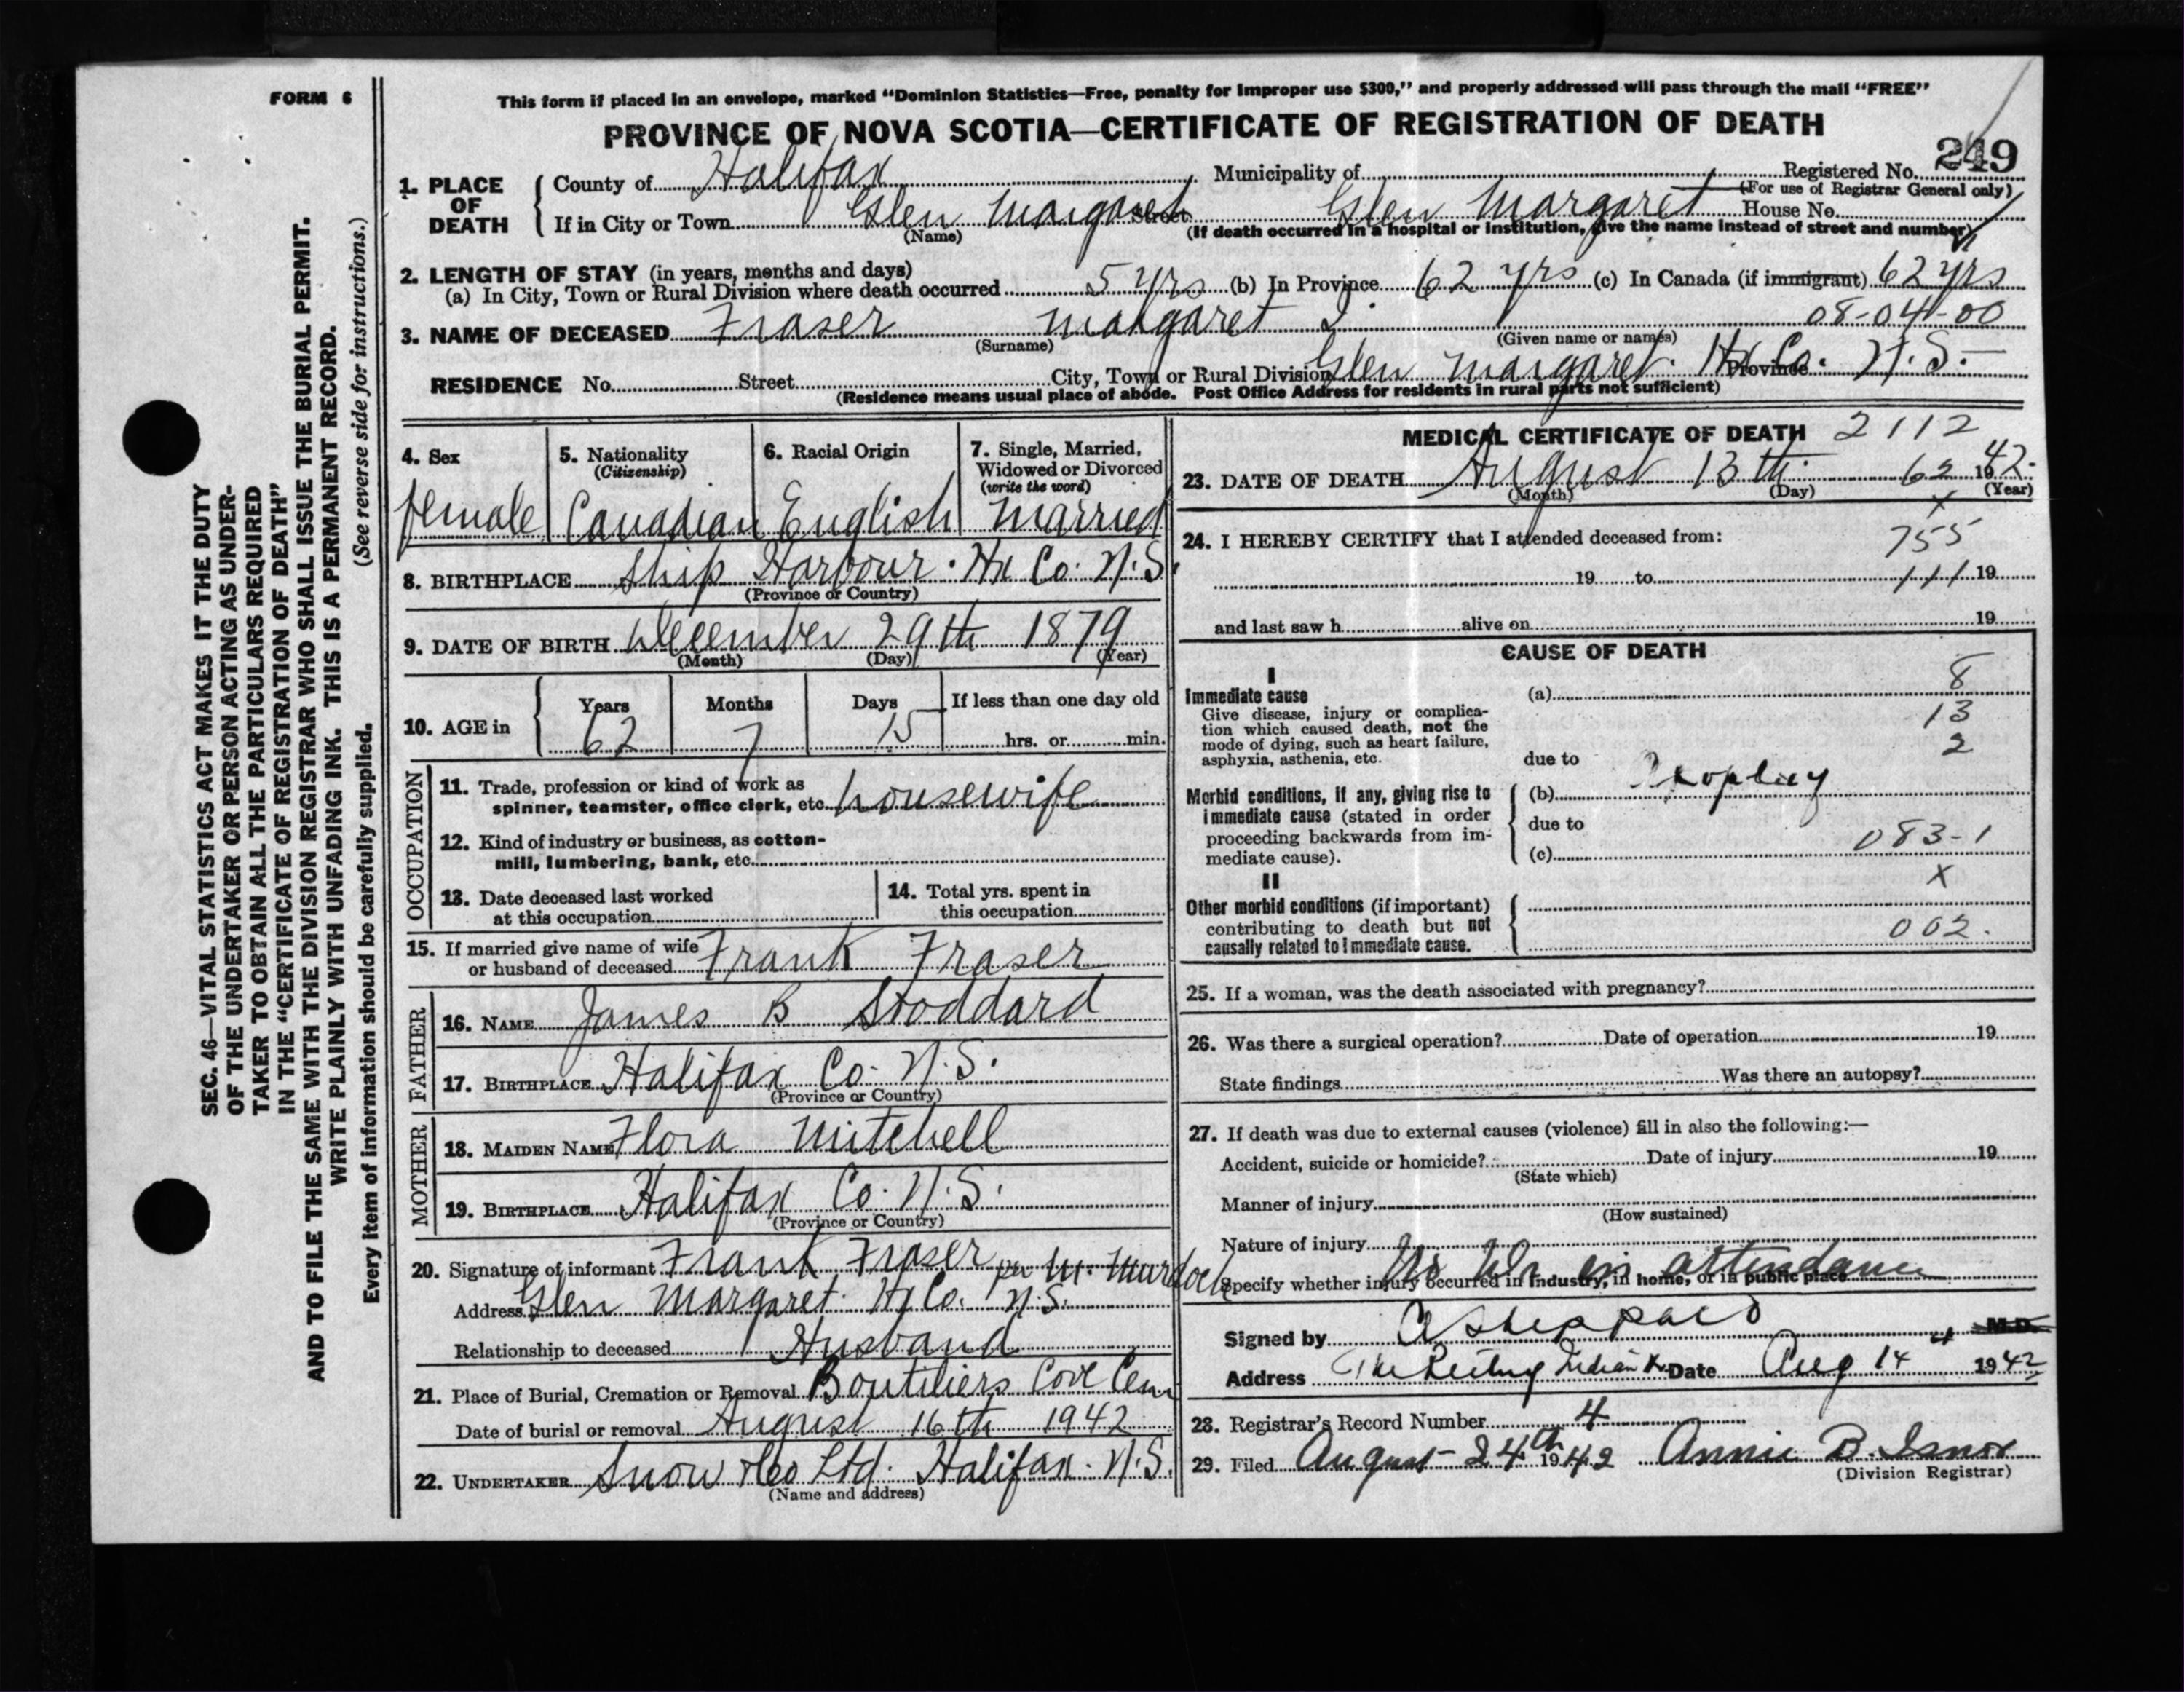 FORM 6
This form if placed in an envelope, marked "Dominion Statistics—Free, penalty for improper use $300," and properly addressed will pass through the mail "FREE"
PROVINCE OF NOVA SCOTIA—CERTIFICATE OF REGISTRATION OF DEATH
249
1. PLACE OF DEATH
County of Halifax Municipality of Registered No.
(For use of Registrar General only)
If in City or Town Glen Margaret Street Glen Margaret House No.
(Name) (If death occurred in a hospital or institution, give the name instead of street and number)
2. LENGTH OF STAY (in years, months and days)
(a) In City, Town or Rural Division where death occurred 5 yrs (b) In Province 62 yrs (c) In Canada (if immigrant) 62 yrs
08-04-00
3. NAME OF DECEASED Fraser Margaret I.
(Surname) (Given name or names)
RESIDENCE No. Street City, Town or Rural Division Glen Margaret. Hx Co. Province N.S.
(Residence means usual place of abode. Post Office Address for residents in rural parts not sufficient)
4. Sex
female
5. Nationality
(Citizenship)
Canadian
6. Racial Origin
English
7. Single, Married,
Widowed or Divorced
(write the word)
Married
8. BIRTHPLACE Ship Harbour. Hx Co. N.S.
(Province or Country)
9. DATE OF BIRTH December 29th 1879
(Month) (Day) (Year)
10. AGE in Years Months Days If less than one day old
62 7 15 hrs. or min.
OCCUPATION
11. Trade, profession or kind of work as
spinner, teamster, office clerk, etc. housewife
12. Kind of industry or business, as cotton-
mill, lumbering, bank, etc.
13. Date deceased last worked
at this occupation
14. Total yrs. spent in
this occupation
15. If married give name of wife
or husband of deceased Frank Fraser
FATHER
16. NAME James B Stoddard
17. BIRTHPLACE Halifax Co. N.S.
(Province or Country)
MOTHER
18. MAIDEN NAME Flora Mitchell
19. BIRTHPLACE Halifax Co. N.S.
(Province or Country)
20. Signature of informant Frank Fraser per M. Murdoch
Address Glen Margaret. Hx Co. N.S.
Relationship to deceased Husband
21. Place of Burial, Cremation or Removal Boutiliers Cove Cem
Date of burial or removal August 16th 1942
22. UNDERTAKER Snow & Co Ltd. Halifax. N.S.
(Name and address)
MEDICAL CERTIFICATE OF DEATH 2112
23. DATE OF DEATH August 13th. 62 1942.
(Month) (Day) (Year)
x
24. I HEREBY CERTIFY that I attended deceased from: 755
19 to 111 19
and last saw h alive on 19
CAUSE OF DEATH
I
Immediate cause (a) 8
Give disease, injury or complica-
tion which caused death, not the
mode of dying, such as heart failure,
asphyxia, asthenia, etc.
13
2
due to
Morbid conditions, if any, giving rise to
immediate cause (stated in order
proceeding backwards from im-
mediate cause).
(b)
due to
(c) 083-1
x
II
Other morbid conditions (if important)
contributing to death but not
causally related to immediate cause.
002.
25. If a woman, was the death associated with pregnancy?
26. Was there a surgical operation? Date of operation 19
State findings Was there an autopsy?
27. If death was due to external causes (violence) fill in also the following:—
Accident, suicide or homicide? Date of injury 19
(State which)
Manner of injury
(How sustained)
Nature of injury
No Dr in attendance
Specify whether injury occurred in industry, in home, or in public place
Signed by A Sheppard M.D.
Address Date Aug 14 1942
28. Registrar's Record Number 4
29. Filed August 24th 1942 Annie B. Isnor
(Division Registrar)
SEC. 46—VITAL STATISTICS ACT MAKES IT THE DUTY
OF THE UNDERTAKER OR PERSON ACTING AS UNDER-
TAKER TO OBTAIN ALL THE PARTICULARS REQUIRED
IN THE "CERTIFICATE OF REGISTRATION OF DEATH"
AND TO FILE THE SAME WITH THE DIVISION REGISTRAR WHO SHALL ISSUE THE BURIAL PERMIT.
WRITE PLAINLY WITH UNFADING INK. THIS IS A PERMANENT RECORD.
Every item of information should be carefully supplied. (See reverse side for instructions.)